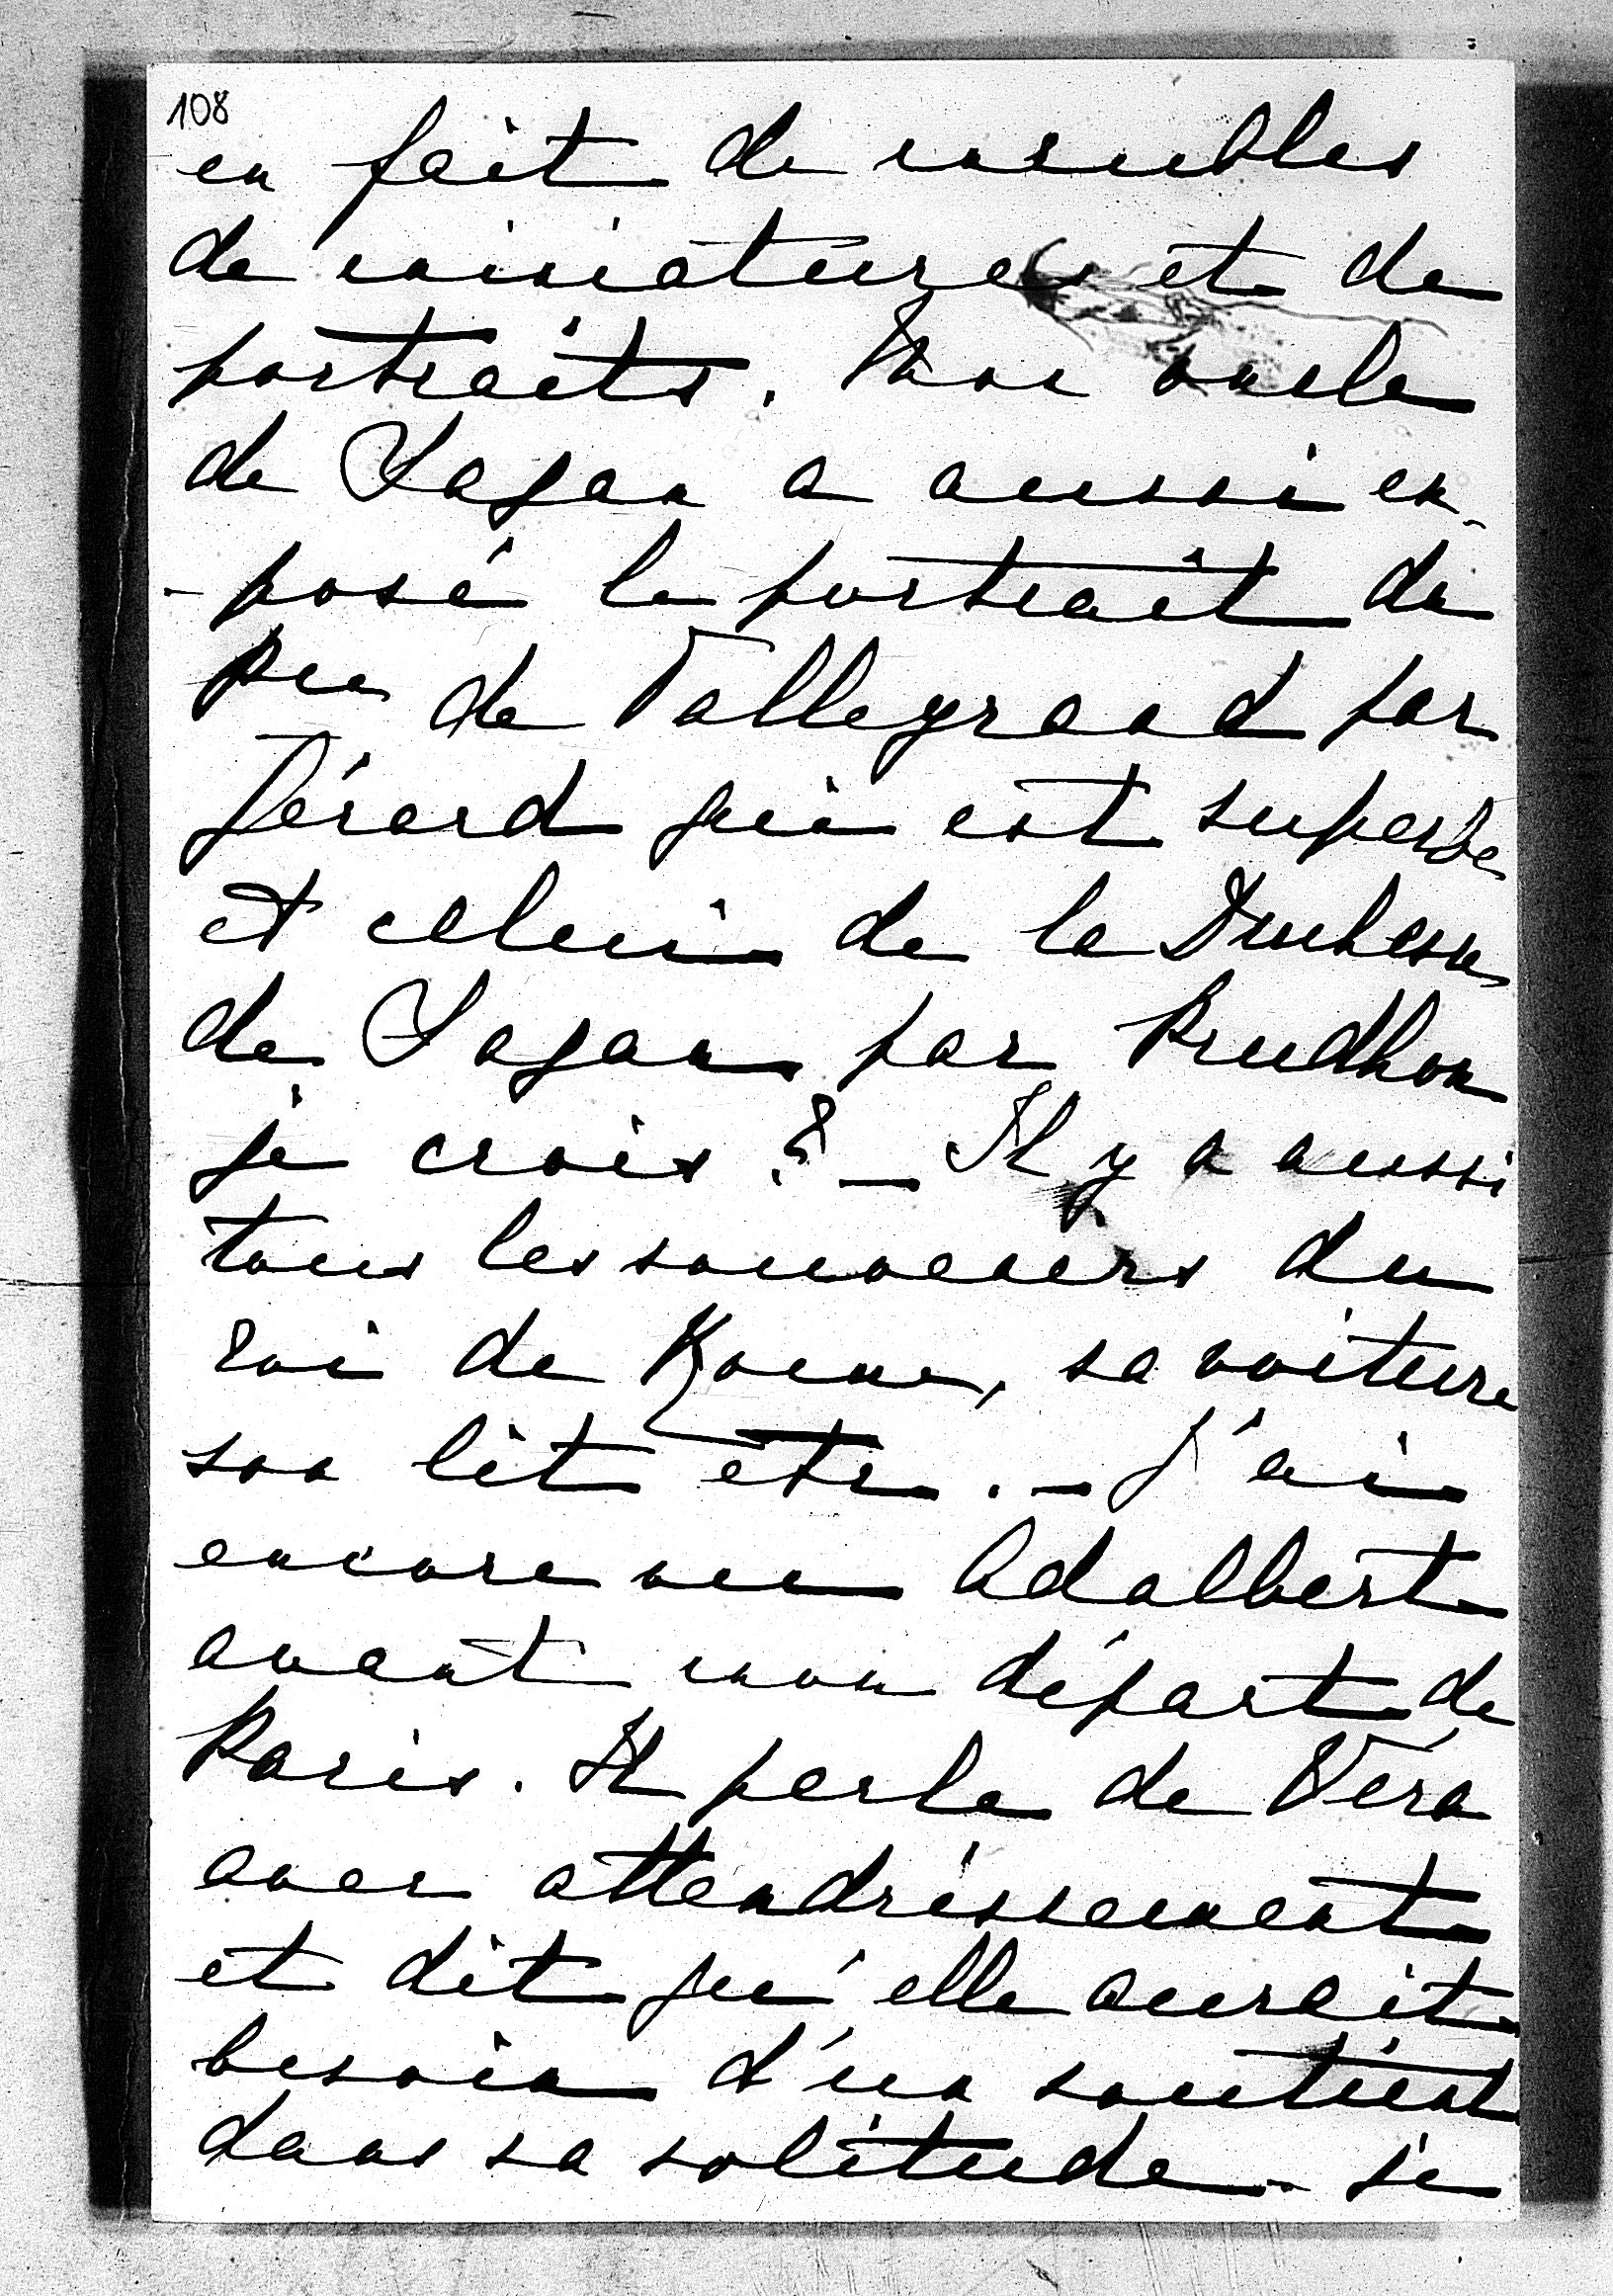 108
en fait de meubles
de miniatures et de
portraits. Mon oncle
de Sagan a aussi ex-
-posé le portrait du
Pce de Talleyrand par
Gérard qui est superbe
et celui de la Duchesse
de Sagan par Prudhon
je crois ? – Il y a aussi
tous les souvenirs du
roi de Rome, sa voiture
son lit etc. – J'ai
encore vu Adalbert
avant mon départ de
Paris. Il parle de Vera
avec attendrissement
et dit qu'elle aurait
besoin d'un soutient
dans sa solitude – je